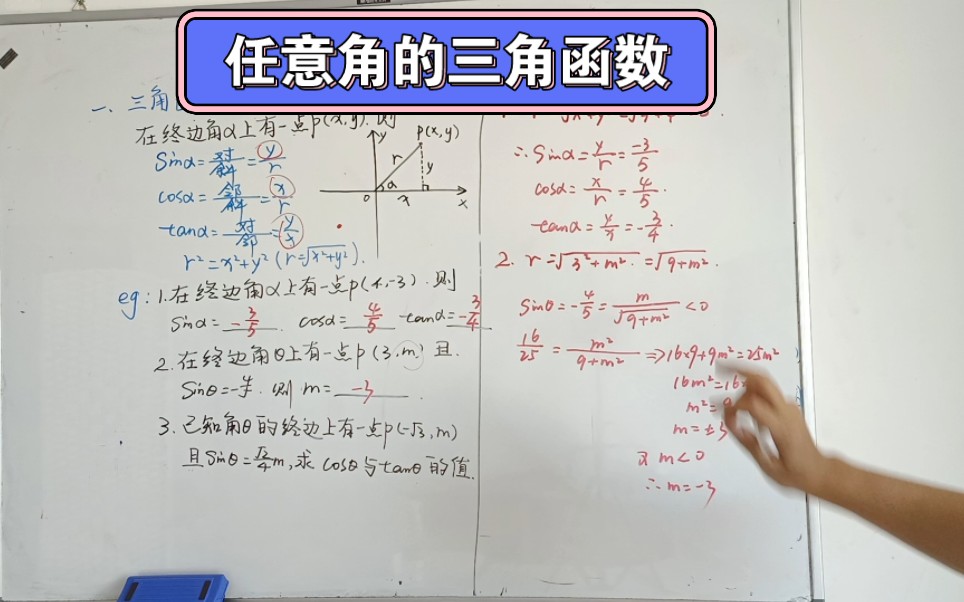 任意角的三角函数
一、三角
在终边角α上有一点p(x,y).则
sinα=对/斜=y/r
cosα=邻/斜=x/r
tanα=对/邻=y/x
r²=x²+y²(r=√x²+y²).
y
p(x,y)
r
y
α
o
x
x
eg:1.在终边角α上有一点p(4,-3).则
sinα=-3/5. cosα=4/5 tanα=-3/4
2.在终边角θ上有一点P(3,m)且.
sinθ=-4/5.则m=-3.
3.已知角θ的终边上有一点p(-√3,m)
且sinθ=√2/4m,求cosθ与tanθ的值.
∴sinα=y/r=-3/5
cosα=x/r=4/5.
tanα=y/x=-3/4.
2. r=√3²+m².=√9+m².
sinθ=-4/5=m/√9+m²<0
16/25=m²/9+m²=>16×9+9m²=25m²
16m²=16
m²=9
m=±3
又m<0
∴m=-3